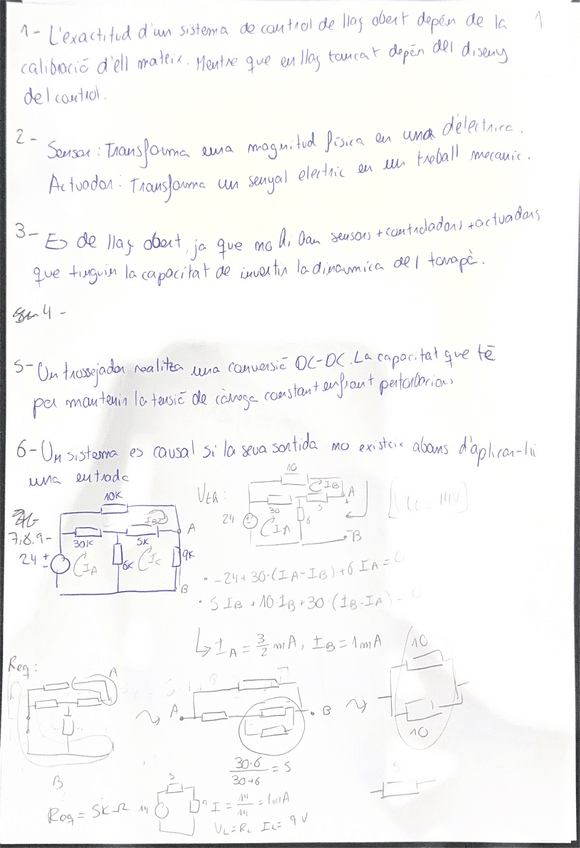 1
1- L'exactitud d'un sistema de control de llaç obert depèn de la
calibració d'ell mateix. Mentre que en llaç tancat depèn del disseny
del control.
2-
Sensor: Transforma una magnitud física en una d'elèctrica.
Actuador: Transforma un senyal electric en un treball mecanic.
3- Es de llaç obert, ja que no hi han sensors + controladors + actuadors
que tinguin la capacitat de invertir la dinamica del
4-
5- Un trossejador realitza una conversió DC-DC. La capacitat que té
per mantenir la tensió de càrrega constant enfront pertorbacions
6- Un sistema es causal si la seva sortida no existeix abans d'aplicar-li
una entrada
7,8,9-
10K
30K
5K
6K
9K
24
A
B
IA
IB
IC
Vth:
10
30
5
6
24
IA
IB
A
B
• -24+30·(IA-IB)+6 IA =
• 5 IB + 10 IB + 30 (IB-IA)
↳ IA = 3/2 mA, IB = 1 mA
Req:
A
B
A
B
10
10
30·6
30+6
= 5
5
Req = 5K Ω
5
14
9
I = 14/14 = 1mA
VL = RL IL = 9 V